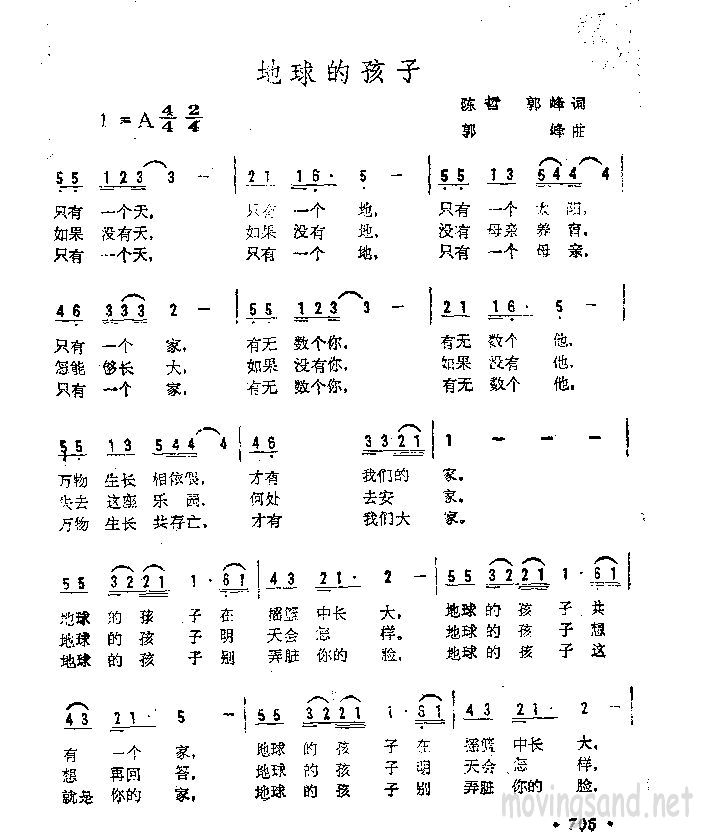 地球的孩子
1 = A 4/4 2/4
陈哲 郭峰词
郭 峰曲
5 5 1 2 3 3 - | 2 1 1 6 · 5 - | 5 5 1 3 5 4 4 4 |
只有 一个天, 只有 一个 地, 只有 一个 太 阳,
如果 没有天, 如果 没有 地, 没有 母亲 养 育,
只有 一个天, 只有 一个 地, 只有 一个 母 亲,
4 6 3 3 3 2 - | 5 5 1 2 3 3 - | 2 1 1 6 · 5 - |
只有 一 个 家, 有无 数个你, 有无 数个 他,
怎能 够长 大, 如果 没有你, 如果 没有 他,
只有 一个 家, 有无 数个你, 有无 数个 他,
5 5 1 3 5 4 4 4 | 4 6 3 3 2 1 | 1 - - - |
万物 生长 相依偎, 才有 我们的 家。
失去 这座 乐 园, 何处 去安 家。
万物 生长 共存亡, 才有 我们大 家。
5 5 3 2 2 1 1 · 6 1 | 4 3 2 1 · 2 - | 5 5 3 2 2 1 1 · 6 1 |
地球 的 孩 子 在 摇篮 中长 大, 地球 的 孩 子 共
地球 的 孩 子 明 天会 怎 样。 地球 的 孩 子 想
地球 的 孩 子 别 弄脏 你的 脸, 地球 的 孩 子 这
4 3 2 1 · 5 - | 5 5 3 2 2 1 1 · 6 1 | 4 3 2 1 · 2 - |
有 一 个 家, 地球 的 孩 子 在 摇篮 中长 大,
想 再回 答, 地球 的 孩 子 明 天会 怎 样,
就是 你的 家, 地球 的 孩 子 别 弄脏 你的 脸,
movingsand.net
· 706 ·